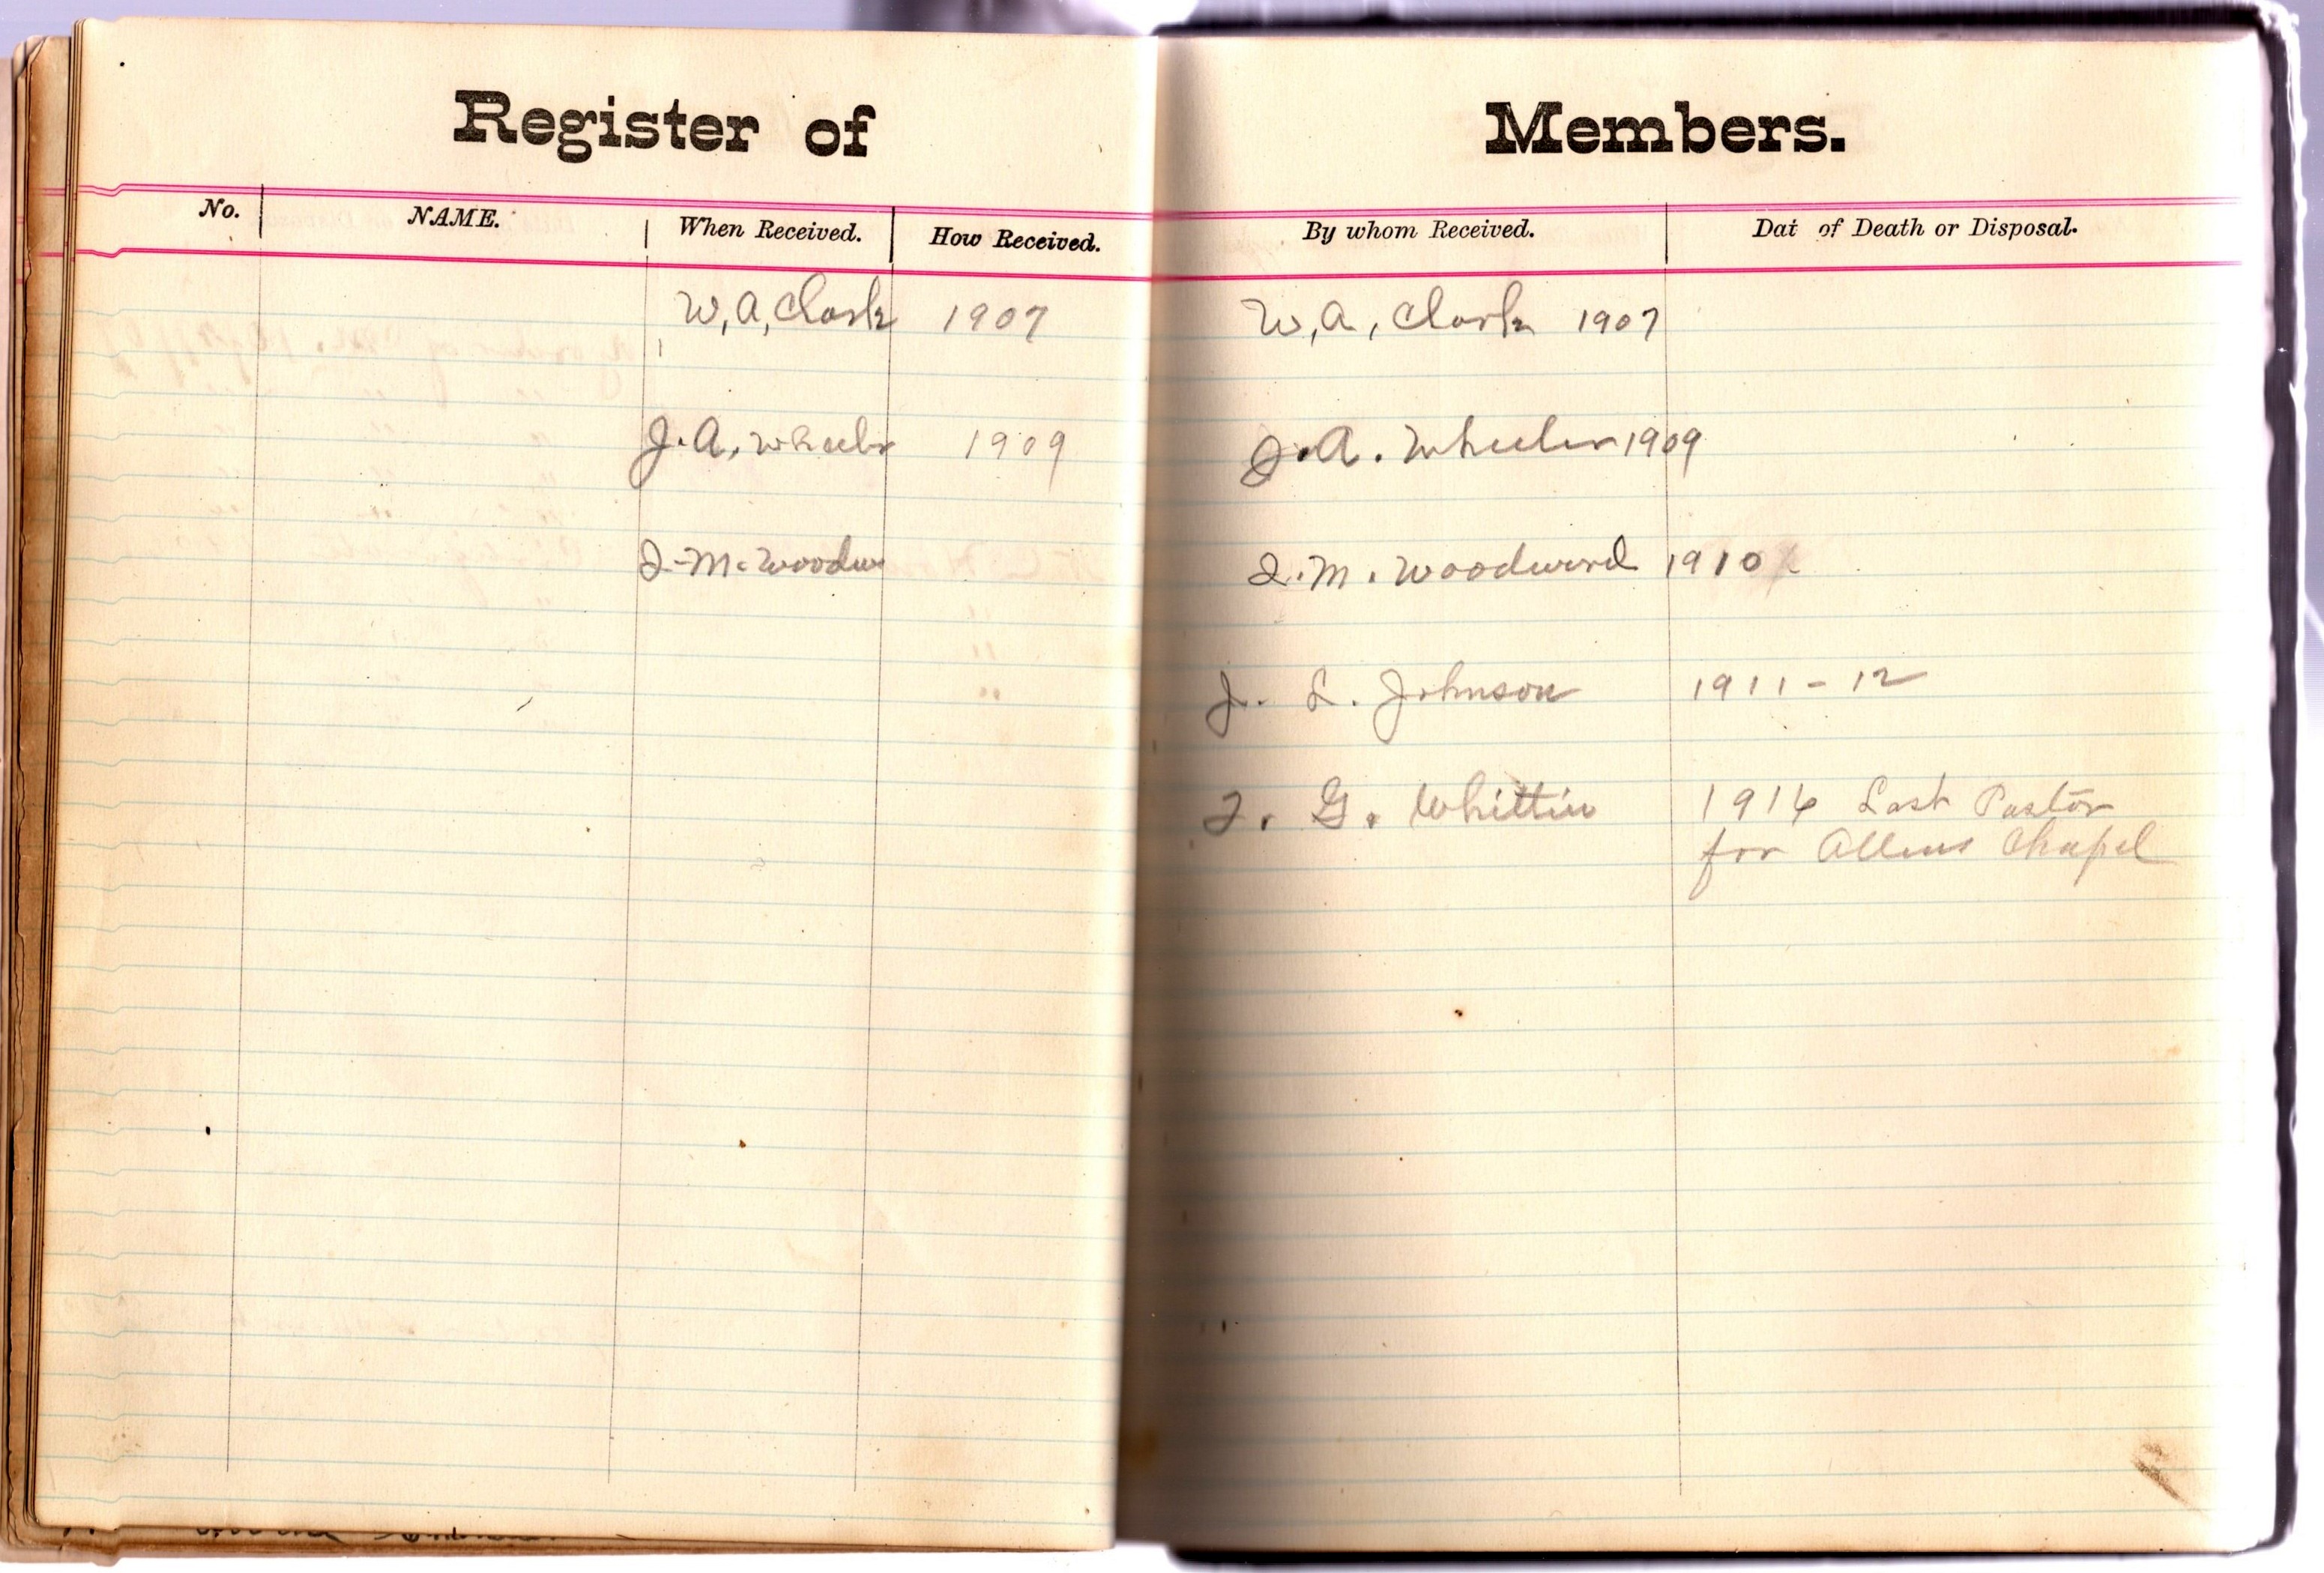 Register of Members.
No. NAME. When Received. How Received. By whom Received. Dat of Death or Disposal.
W, A, Clark 1907 W, A, Clark 1907
J. A. Wheeler 1909 J. A. Wheeler 1909
I. M. Woodw I. M. Woodward 1910
J. L. Johnson 1911-12
G. Whittin 1914 Last Pastor
for Allens Chapel